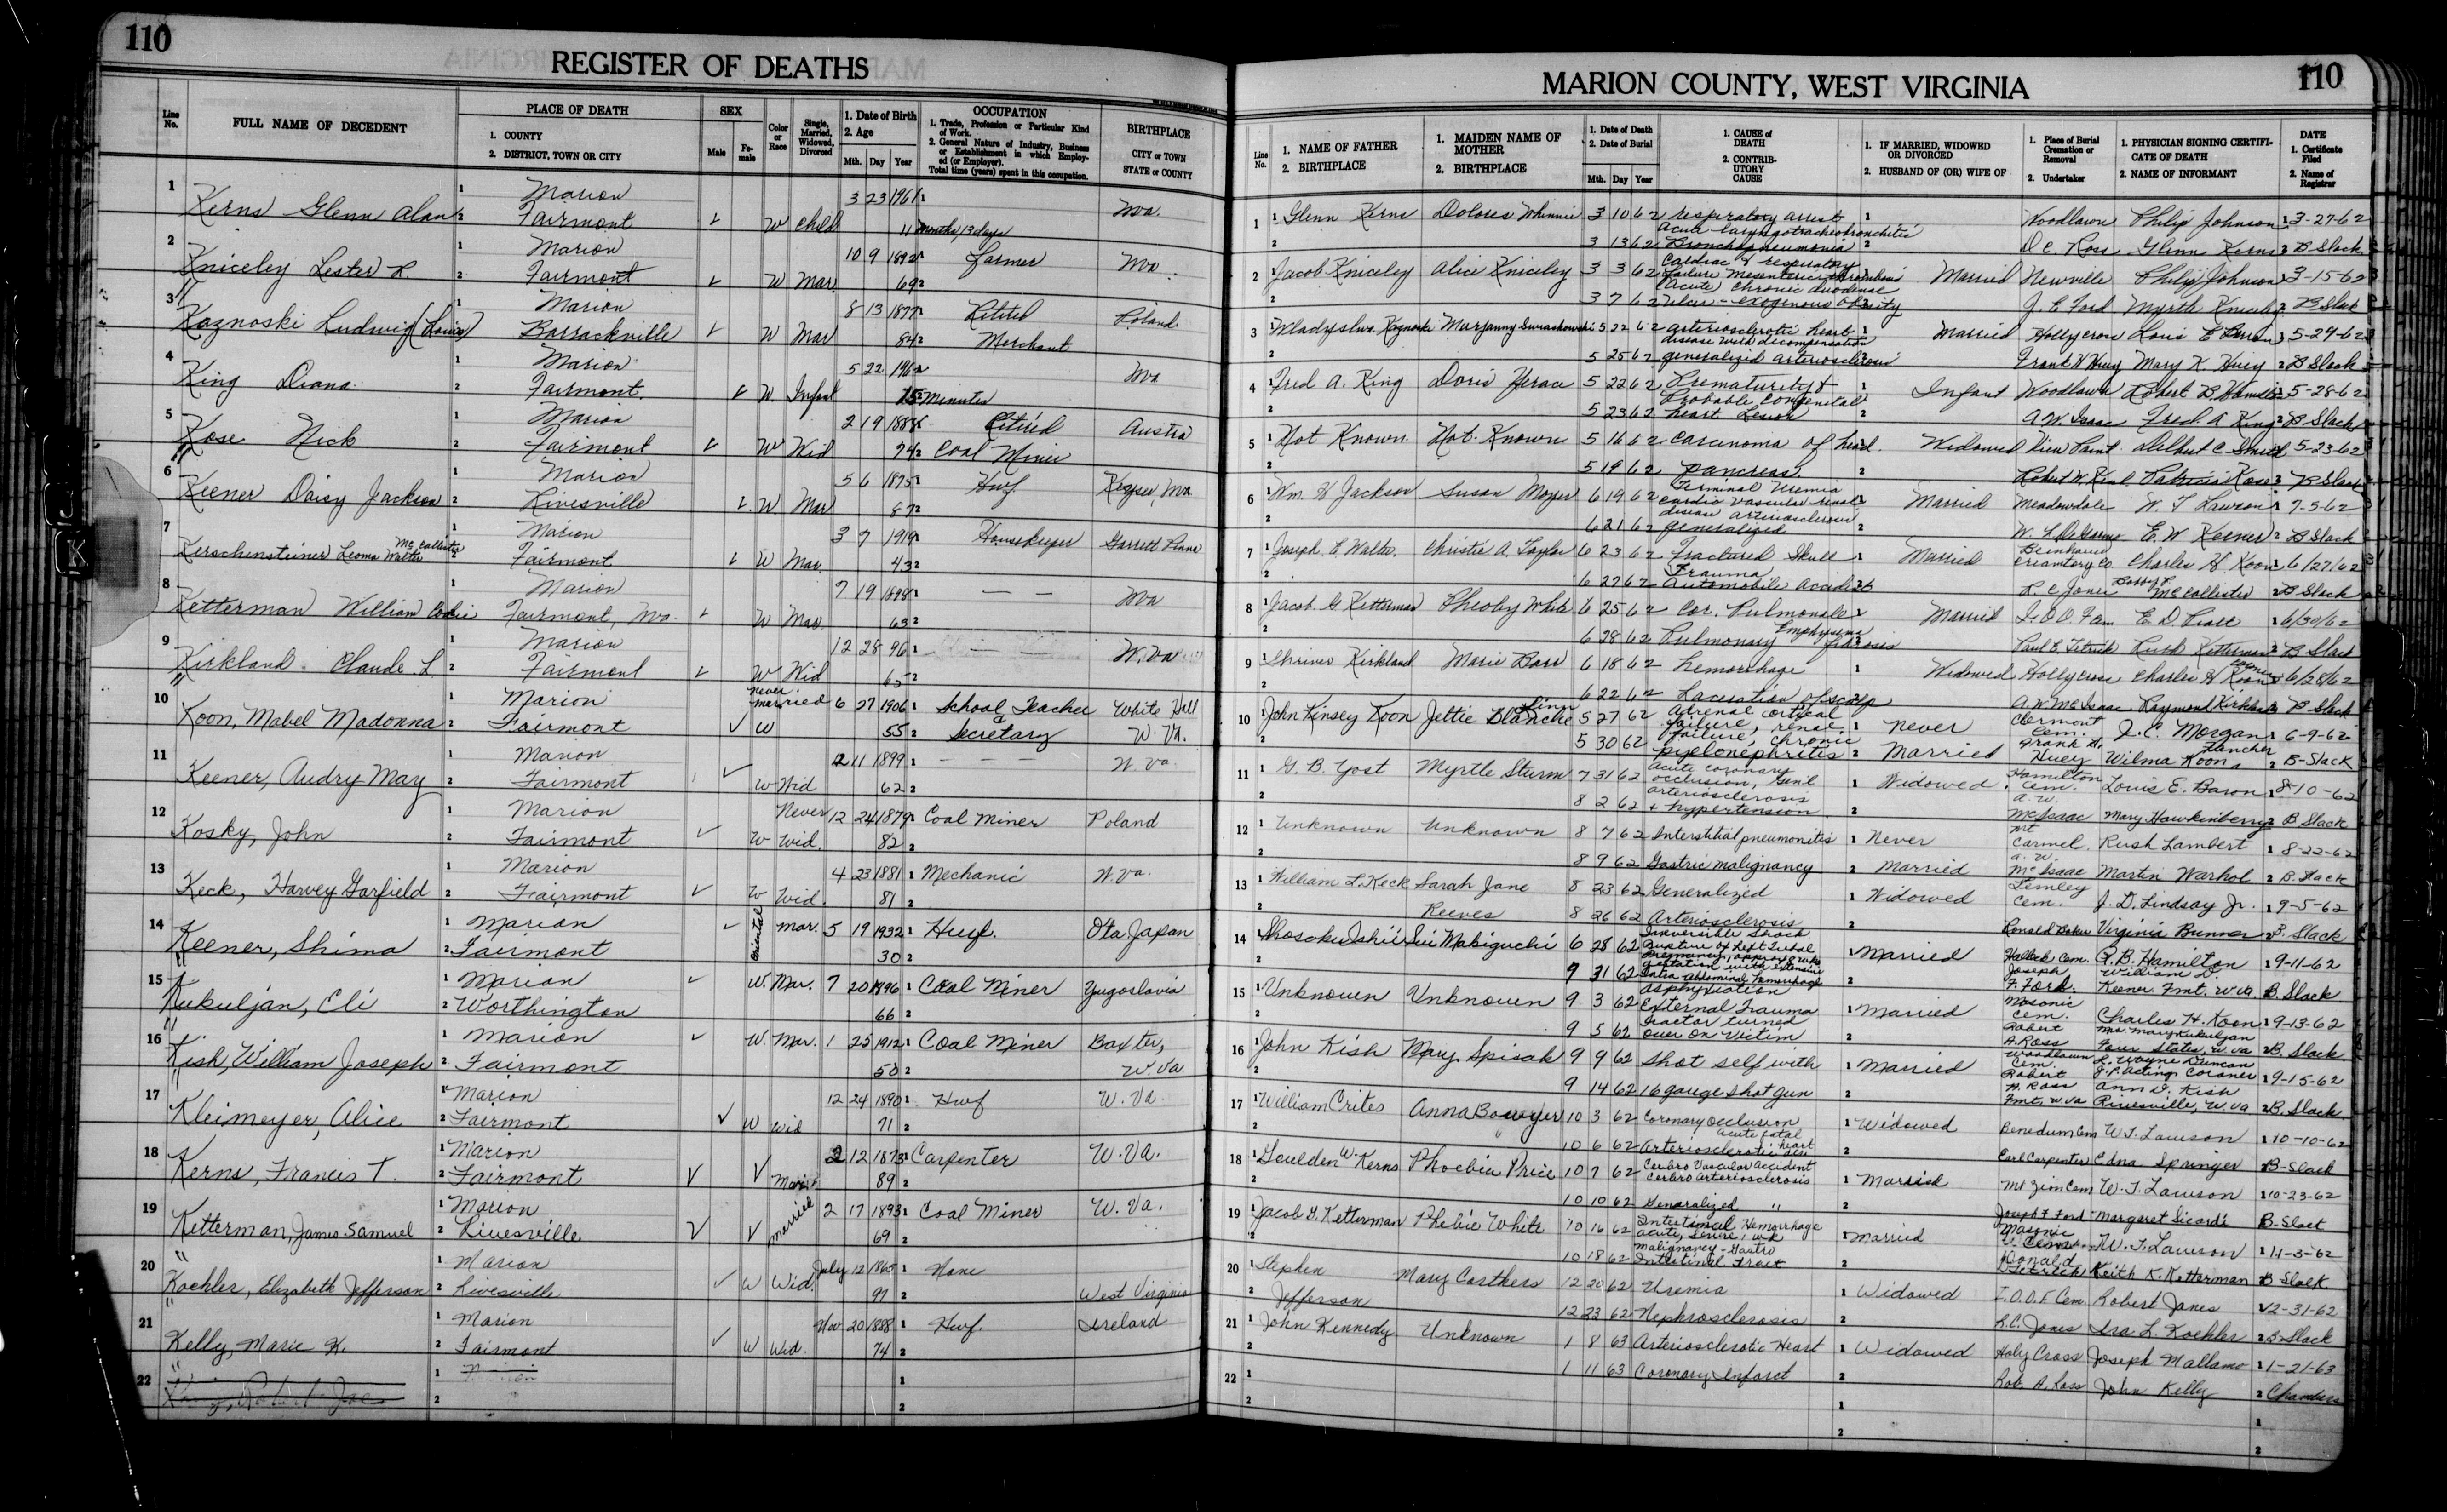 110
REGISTER OF DEATHS
Line No.
FULL NAME OF DECEDENT
PLACE OF DEATH
1. COUNTY
2. DISTRICT, TOWN OR CITY
SEX
Male
Female
Color or Race
Single, Married, Widowed, Divorced
1. Date of Birth
2. Age
Mth. Day Year
OCCUPATION
1. Trade, Profession or Particular Kind of Work.
2. General Nature of Industry, Business or Establishment in which Employed (or Employer).
Total time (years) spent in this occupation.
BIRTHPLACE
CITY or TOWN
STATE or COUNTY
1 Kerns Glenn Alan 1 Marion 2 Fairmont W Child 3 23 1961 11 months 13 days Wva.
2 Kniceley Lester L. 1 Marion 2 Fairmont W Mar. 10 9 1892 69 Farmer Wva
3 Koznoski Ludwig (Louis) 1 Marion 2 Barrackville W Mar 8 13 1877 84 Retired Merchant Poland
4 King Diana 1 Marion 2 Fairmont W. Infant 5 22 1962 15 minutes Wva
5 Kose Nick 1 Marion 2 Fairmont W Wid 2 19 1888 74 Retired Coal Miner Austria
6 Keener Daisy Jackson 1 Marion 2 Rivesville W. Mar 5 6 1875 87 Hwf. Keyser, Wva.
7 Kerschensteiner Leoma Walter McCallister 1 Marion 2 Fairmont W Mar. 3 7 1919 43 Housekeeper Garrett
8 Ketterman William 1 Marion 2 Fairmont, Wva. W Mar. 7 19 1898 63 — — Wva
9 Kirkland Claude L. 1 Marion 2 Fairmont W Wid 12 28 96 65 — — — W.Va
10 Koon, Mabel Madonna 1 Marion 2 Fairmont W never married 6 27 1906 55 School Teacher & Secretary White Hall W. Va.
11 Keener, Audry May 1 Marion 2 Fairmont W Wid 2 11 1899 62 — — — W. Va.
12 Kosky, John 1 Marion 2 Fairmont W Never Wid. 12 24 1879 82 Coal Miner Poland
13 Keck, Harvey Garfield 1 Marion 2 Fairmont W Wid. 4 23 1881 81 Mechanic W. Va.
14 Keener, Shima 1 Marion 2 Fairmont Oriental Mar. 5 19 1932 30 Hwf. Ota Japan
15 Kukuljan, Eli 1 Marion 2 Worthington W. Mar. 7 20 1896 66 Coal Miner Yugoslavia
16 Kish, William Joseph 1 Marion 2 Fairmont W. Mar. 1 25 1912 50 Coal Miner Baxter, W. Va
17 Kleimeyer, Alice 1 Marion 2 Fairmont W Wid 12 24 1890 71 Hwf W. Va.
18 Kerns, Francis T. 1 Marion 2 Fairmont Married 2 12 1873 89 Carpenter W. Va.
19 Ketterman, James Samuel 1 Marion 2 Rivesville married 2 17 1893 69 Coal Miner W. Va.
20 Koehler, Elizabeth Jefferson 1 Marion 2 Rivesville W Wid. July 12 1865 97 None West Virginia
21 Kelly, Marie K. 1 Marion 2 Fairmont W Wid. Nov 20 1888 74 Hwf. Ireland
22 1 2
MARION COUNTY, WEST VIRGINIA
110
Line No.
1. NAME OF FATHER
2. BIRTHPLACE
1. MAIDEN NAME OF MOTHER
2. BIRTHPLACE
1. Date of Death
2. Date of Burial
Mth. Day Year
1. CAUSE of DEATH
2. CONTRIBUTORY CAUSE
1. IF MARRIED, WIDOWED OR DIVORCED
2. HUSBAND OF (OR) WIFE OF
1. Place of Burial Cremation or Removal
2. Undertaker
1. PHYSICIAN SIGNING CERTIFICATE OF DEATH
2. NAME OF INFORMANT
DATE
1. Certificate Filed
2. Name of Registrar
1 Glenn Kerns Dolores Whinnie 3 10 62 respiratory arrest Woodlawn Philip Johnson 3-27-62
3 13 62 Acute laryngotracheobronchitis Bronchopneumonia D C Ross Glenn Kerns B Slack
2 Jacob Kniceley Alice Kniceley 3 3 62 Cardiac & respiratory failure mesenteric thrombosis Married Newville Philip Johnson 3-15-62
3 7 62 (Acute) Chronic duodenal Ulcer - exogenous obesity J. E Ford Myrth Kniceley B Slack
3 Koznoski 5 22 62 arteriosclerotic heart disease with decompensation Married Holly cross Louis E 5-24-62
5 25 62 generalized arteriosclerosis Frank H Huey Mary K. Huey B Slack
4 Fred A. King Doris Yerace 5 22 62 Prematurity & Infant Woodlawn Robert B Hamilton 5-28-62
5 23 62 Probable Congenital heart Lesion A.W. Isaac Fred A King B Slack
5 Not Known Not Known 5 16 62 Carcinoma of head Widowed View Point 5-23-62
5 19 62 pancreas B Slack
6 Wm. H Jackson Susan Moyer 6 19 62 Terminal Uremia Cardio vascular renal Married Meadowdale W. T Lawson 7-5-62
6 21 62 disease arteriosclerosis generalized E. W Keener B Slack
7 Joseph E Walter Christie A. Taylor 6 23 62 Fractured Skull Married Charles H Koon 6/27/62
6 27 62 Trauma Automobile Accident R C Jones McCallister B Slack
8 Jacob G Ketterman Pheoby White 6 25 62 Cor. Pulmonale Married I.O.O.F Cem E. D. 6/30/62
6 28 62 Pulmonary Emphysema fibrosis Ruth Ketterman B Slack
9 Shriver Kirkland Marie Barr 6 18 62 hemorrhage Widowed Holly cross Charles H Koon 6/28/62
6 22 62 Laceration of scalp A.W. McIsaac Raymond Kirkland B Slack
10 John Kinsey Koon Jettie Blanche Linn 5 27 62 Adrenal cortical failure, renal Never Clermont Cem. J. C. Morgan 6-9-62
5 30 62 failure, chronic pyelonephritis Married Frank H. Huey Wilma Koon Fancher B-Slack
11 G. B. Yost Myrtle Sturm 7 31 62 Acute coronary occlusion, Gen'l Widowed Hamilton Cem. Louis E. Baron 8-10-62
8 2 62 arteriosclerosis & hypertension A. W. McIsaac Mary Hawkenberry B Slack
12 Unknown Unknown 8 7 62 Interstitial pneumonitis Never Mt Carmel Rush Lambert 8-22-62
8 9 62 Gastric malignancy Married A. W. McIsaac Martin Warhol B. Slack
13 William L. Keck Sarah Jane Reeves 8 23 62 Generalized Widowed Lemley Cem. J. D. Lindsay Jr. 9-5-62
8 26 62 Arteriosclerosis Ronald Baker Virginia Bunner B. Slack
14 Shosaku Ishii Sui Makiguchi 6 28 62 Irreversible Shock Rupture of Left Tubal Pregnancy, Married Hallock Cem. R. B. Hamilton 9-11-62
9 31 62 gestation with extensive Intra-abdominal hemorrhage Joseph F. Ford. William D. Keener Fmt. W Va B. Slack
15 Unknown Unknown 9 3 62 Asphyxiation External Trauma Married Masonic Cem. Charles H. Koon 9-13-62
9 5 62 Tractor turned over on Victim Robert A. Ross Mrs Mary Kukuljan Four States, W Va B. Slack
16 John Kish Mary Spisak 9 9 62 Shot self with Married Woodlawn Cem. L. Wayne Duncan J. P. Acting Coroner 9-15-62
9 14 62 16 gauge shot gun Robert A. Ross Fmt. W Va Ann D. Kish Rivesville, W. Va B. Slack
17 William Crites Anna Bowyer 10 3 62 Coronary Occlusion Acute Fatal Widowed Benedum Cem W. T. Lawson 10-10-62
10 6 62 Arteriosclerotic heart dis Earl Carpenter Edna Springer B-Slack
18 Goulden W. Kerns Phoebia Price 10 7 62 Cerbro Vascular Accident Cerbro Arteriosclerosis Married Mt Zion Cem W. T. Lawson 10-23-62
10 10 62 Genaralized " Joseph F Ford Margaret Sicardi B-Slack
19 Jacob G. Ketterman Phebie White 10 16 62 Intestinal Hemorrhage acute, Severe, 1 wk married Masonic Cem W. T. Lawson 11-3-62
10 18 62 Malignancy - Gastro Intestinal Tract Donald Keith K. Ketterman B Slack
20 Stephen Jefferson Mary Carthers 12 20 62 Uremia Widowed I.O.O.F Cem. Robert Janes 12-31-62
12 23 62 Nephrosclerosis R.C. Jones Ira L. Koehler B Slack
21 John Kennedy Unknown 1 8 63 Arteriosclerotic Heart Widowed Holy Cross Joseph Mallamo 1-21-63
1 11 63 Coronary Infarct Rob. A. Ross John Kelly Chambers
22 1 2